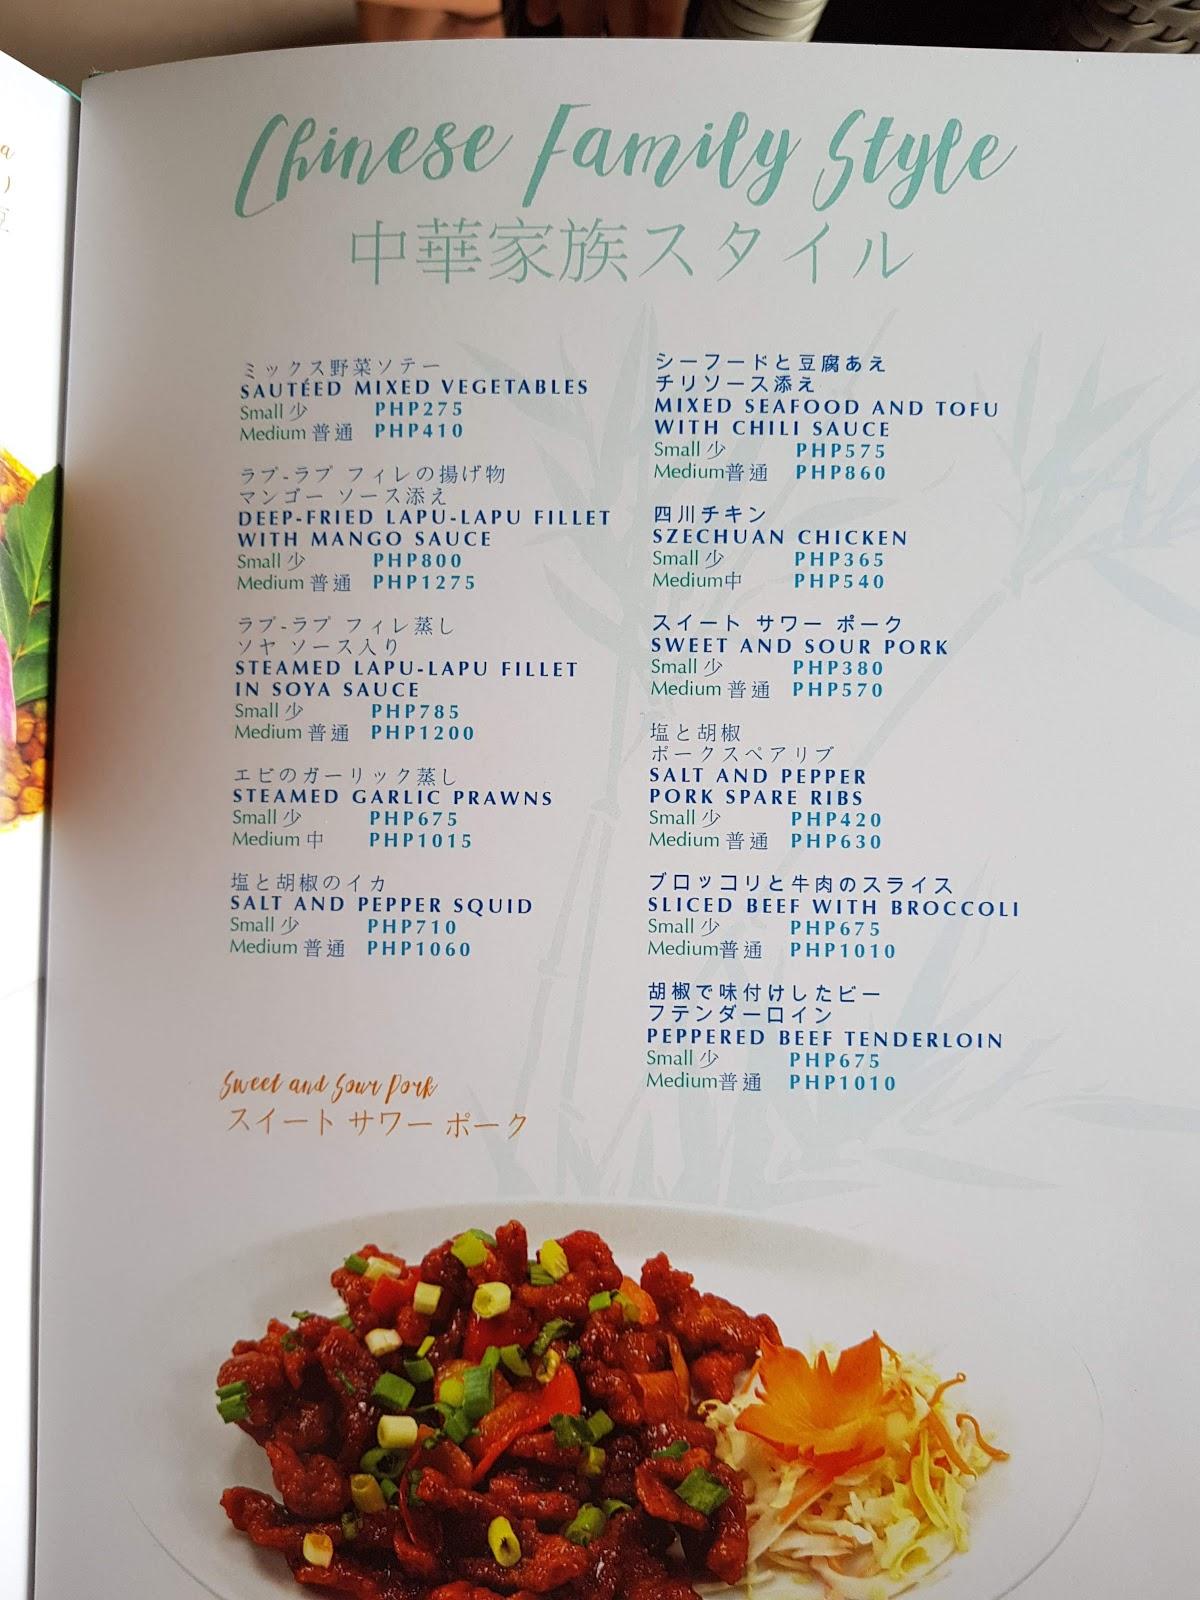 Chinese Family Style
中華家族スタイル
ミックス野菜ソテー
SAUTÉED MIXED VEGETABLES
Small 少 PHP275
Medium 普通 PHP410
ラプ-ラプ フィレの揚げ物
マンゴー ソース添え
DEEP-FRIED LAPU-LAPU FILLET
WITH MANGO SAUCE
Small 少 PHP800
Medium 普通 PHP1275
ラプ-ラプ フィレ蒸し
ソヤ ソース入り
STEAMED LAPU-LAPU FILLET
IN SOYA SAUCE
Small 少 PHP785
Medium 普通 PHP1200
エビのガーリック蒸し
STEAMED GARLIC PRAWNS
Small 少 PHP675
Medium 中 PHP1015
塩と胡椒のイカ
SALT AND PEPPER SQUID
Small 少 PHP710
Medium 普通 PHP1060
シーフードと豆腐あえ
チリソース添え
MIXED SEAFOOD AND TOFU
WITH CHILI SAUCE
Small 少 PHP575
Medium普通 PHP860
四川チキン
SZECHUAN CHICKEN
Small 少 PHP365
Medium中 PHP540
スイート サワー ポーク
SWEET AND SOUR PORK
Small 少 PHP380
Medium 普通 PHP570
塩と胡椒
ポークスペアリブ
SALT AND PEPPER
PORK SPARE RIBS
Small 少 PHP420
Medium 普通 PHP630
ブロッコリと牛肉のスライス
SLICED BEEF WITH BROCCOLI
Small 少 PHP675
Medium普通 PHP1010
胡椒で味付けしたビー
フテンダーロイン
PEPPERED BEEF TENDERLOIN
Small 少 PHP675
Medium普通 PHP1010
Sweet and Sour Pork
スイート サワー ポーク